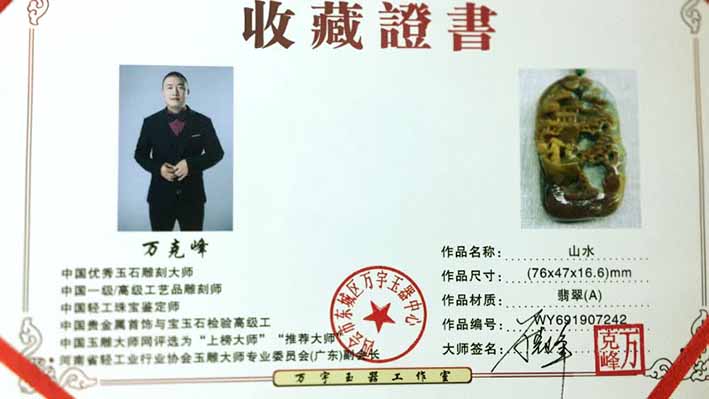 收藏證書
万克峰
中国优秀玉石雕刻大师
中国一级/高级工艺品雕刻师
中国轻工珠宝鉴定师
中国贵金属首饰与宝玉石检验高级工
中国玉雕大师网评选为“上榜大师”“推荐大师”
河南省轻工业行业协会玉雕大师专业委员会(广东)副会长
作品名称: 山水
作品尺寸: (76x47x16.6)mm
作品材质: 翡翠(A)
作品编号: WY691907242
大师签名: 万克峰
市东城区万宇玉器中心
万克峰
万宇玉器工作室